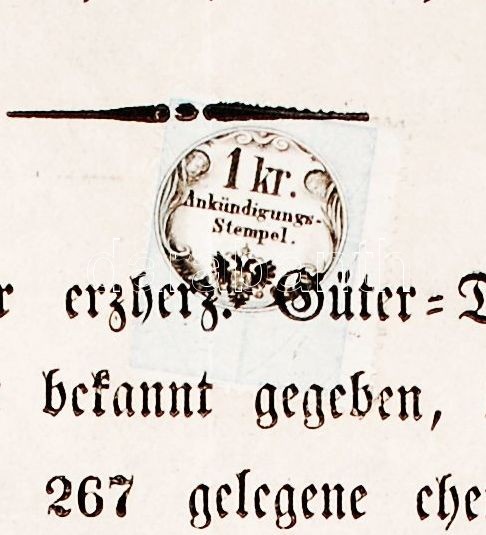 1 kr.
Ankündigungs-
Stempel.
erzherz. Güter=
bekannt gegeben,
267 gelegene